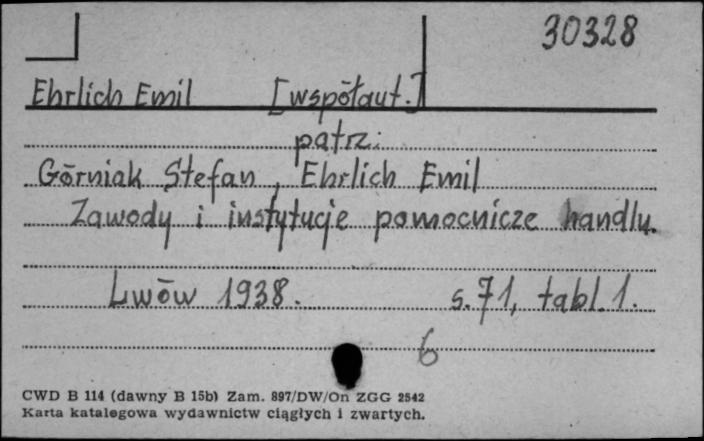 30328
Ehrlich Emil [współaut.]
patrz:
Górniak Stefan, Ehrlich Emil
Zawody i instytucje pomocnicze handlu.
Lwów 1938. s. 71, tabl. 1.
6
CWD B 114 (dawny B 15b) Zam. 897/DW/On ZGG 2542
Karta katalogowa wydawnictw ciągłych i zwartych.